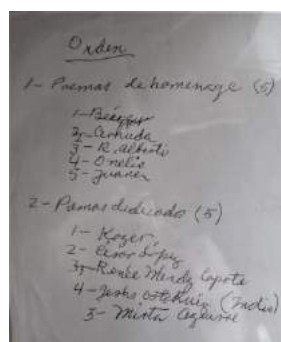 Orden
1- Poemas de homenage (5)
1- Bécquer
2- Cernuda
3- R. Alberti
4- Onelio
5- Juana
2- Pomas dedicado (5)
1- Roger
2- Cesar López
3- Renée Mendez Capote
4- Jesús (Indio)
5- Mirta